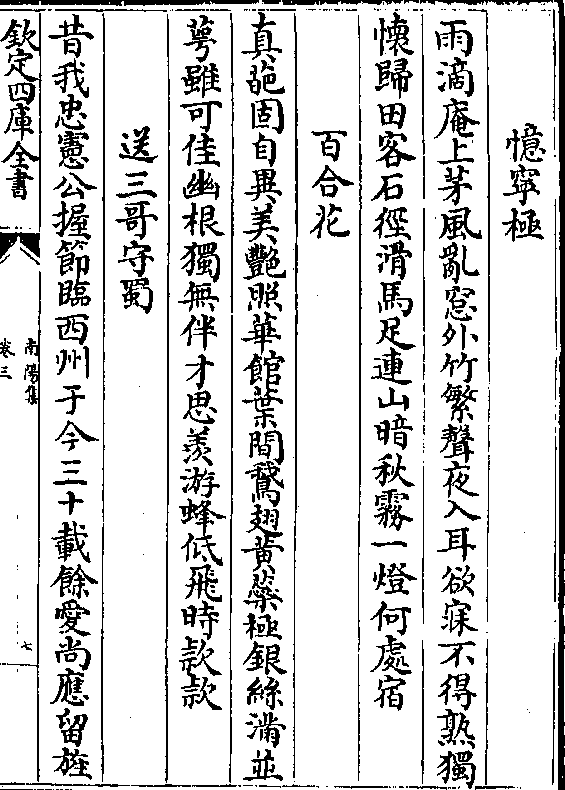 憶寧極
雨滴庵上茅風亂窓外竹繁聲夜入耳欲寐不得熟獨
懷歸田客石徑滑馬足連山暗秋霧一燈何處宿
百合花
真葩固自異美艷照華館葉間鵞翅黄蘂極銀絲滿並
萼雖可佳幽根獨無伴才思羨游蜂低飛時款款
送三哥守蜀
昔我忠憲公握節臨西州于今三十載餘愛尚應留旌
欽定四庫全書
南陽集
卷三
七